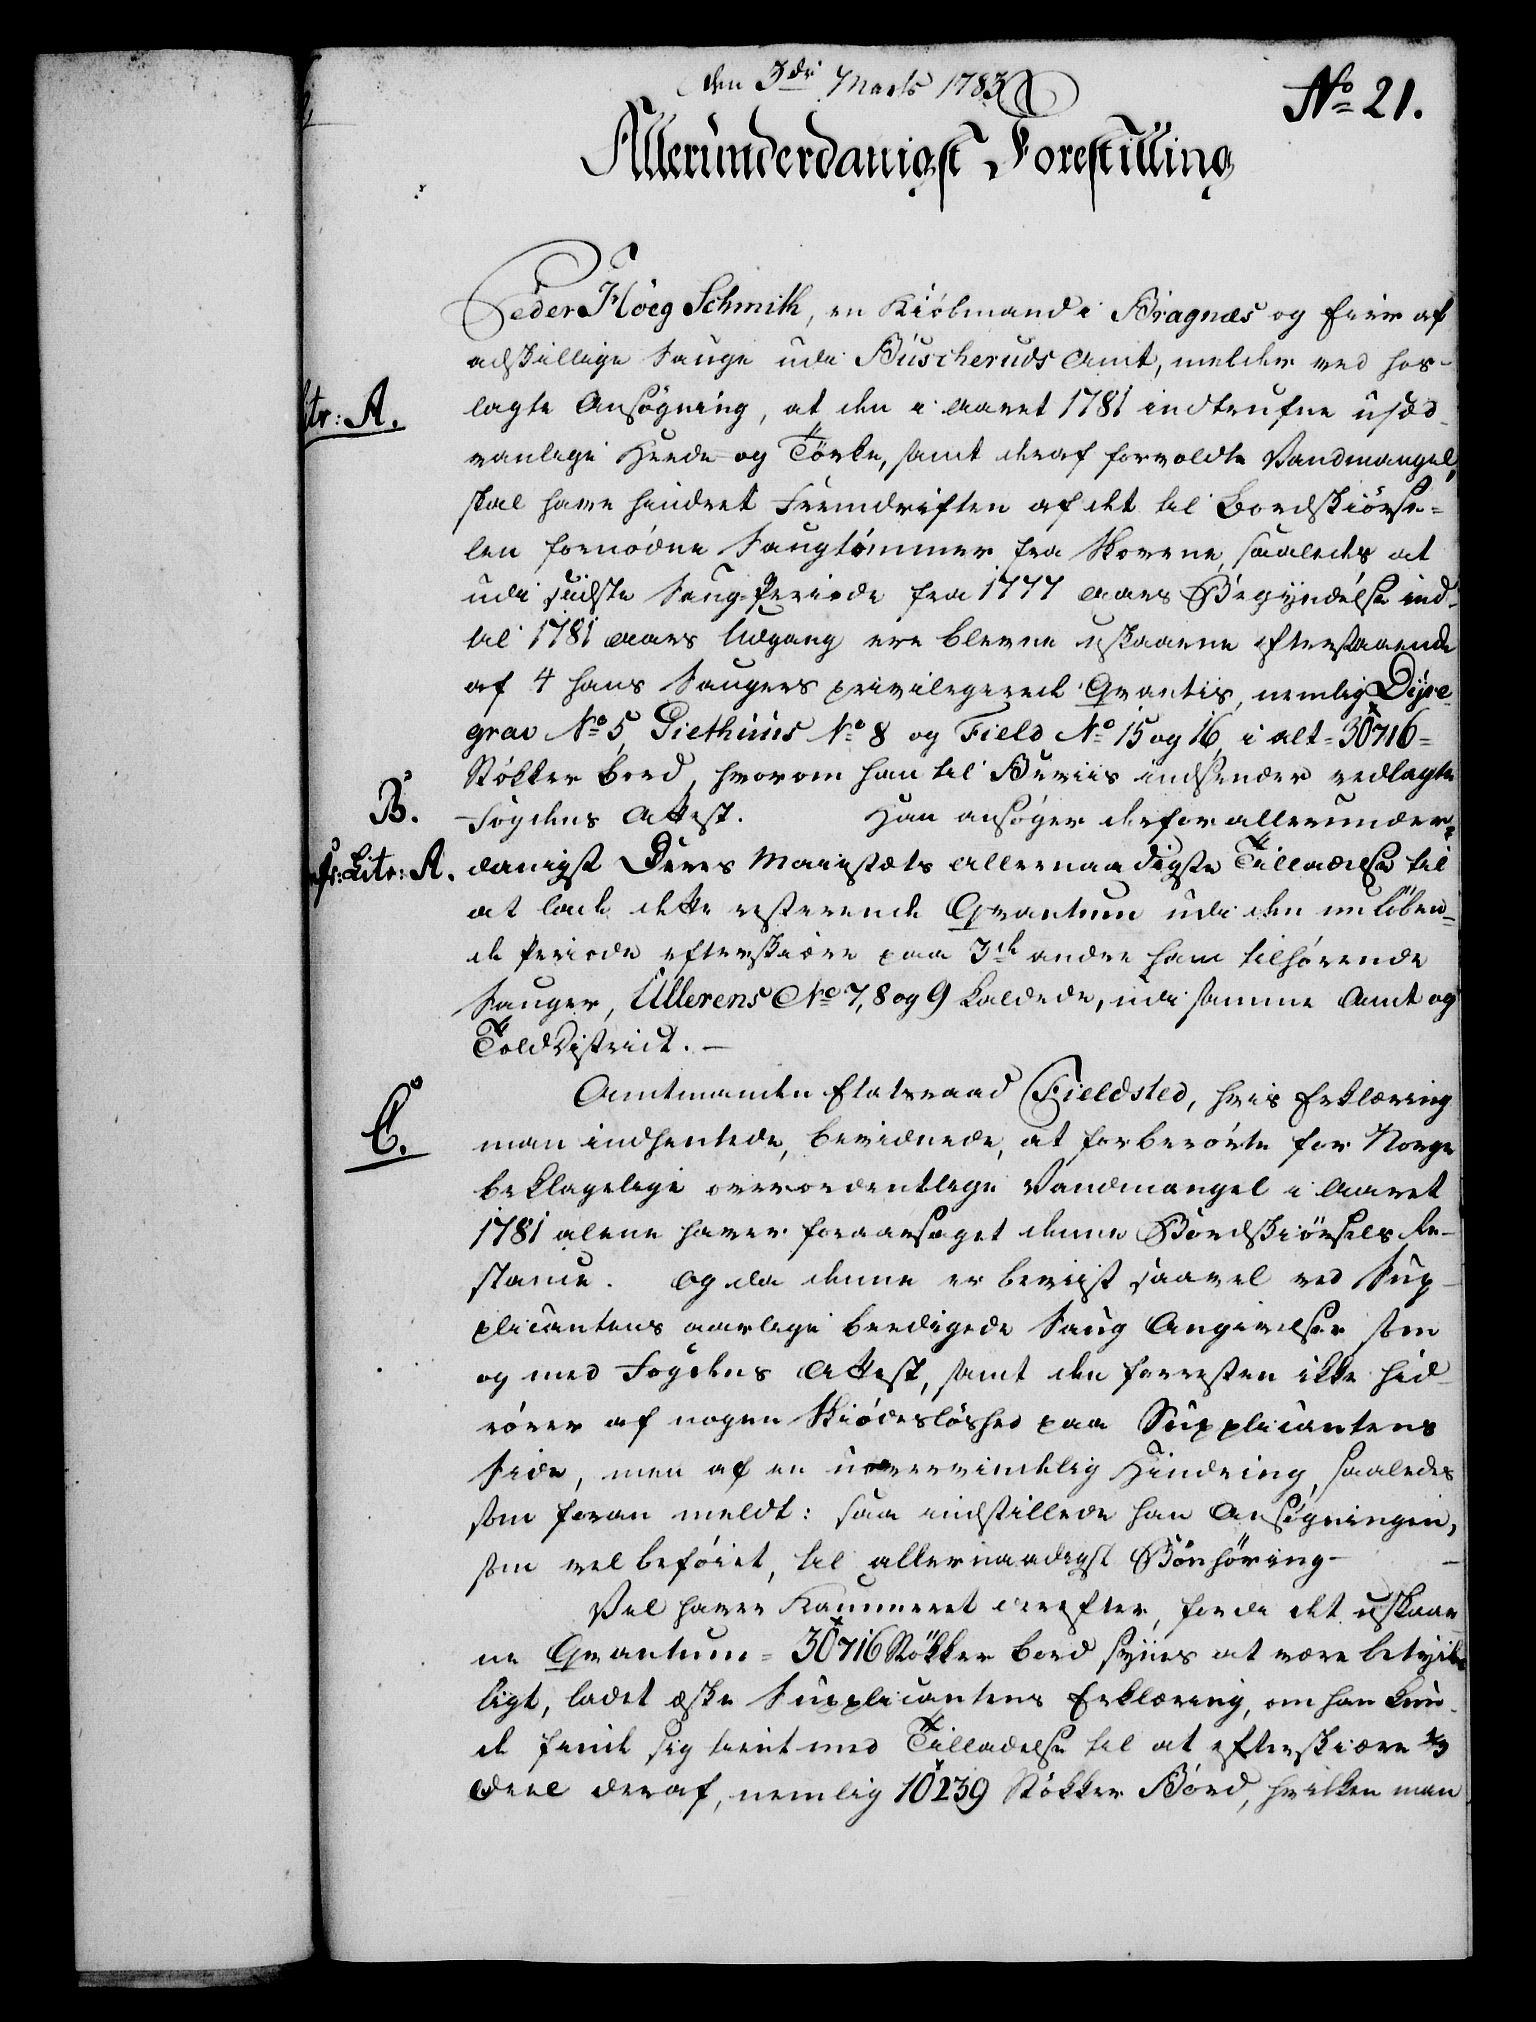 den 3die Marts 1783
No 21.
Allerunderdanigst Forestilling
Peder Höeg Schmith, en Kiöbmand i Bragnæs og Eier af
adskillige Sauge udi Buscheruds Amt, melder ved hos-
Litr: A.
lagte Ansøgning, at den i Aaret 1781 indtrufne usæd-
vanlige Heede og Törke, samt deraf forvoldte Vandmangel,
skal have hindret Fremdriften af det til Bordskiörse-
len fornödne Saugtömmer fra Skovene, saaledes at
udi sidste Saug-Periode fra 1777 Aars Begyndelse ind-
til 1781 Aars Udgang ere blevne uskaarne efterstaaende
af 4 hans Saugers privilegerede Qvantis, nemlig Dyre-
grav No 5, Giethuus No 8 og Field No 15 og 16, i alt = 30716 =
Stökker Bord, hvorom han til Beviis indsender vedlagte
B.
Fogdens Attest. Han ansøger derfor allerunder-
Litr: A.
danigst Deres Majestæts allernaadigste Tilladelse til
at lade dette resterende Qvantum udi den nu löben-
de Periode efterskiære paa 3de andre ham tilhörende
Sauger, Ullerens No 7, 8 og 9 kaldede, udi samme Amt og
Told District. —
Amtmanden Etatsraad Fieldsted, hvis Erklæring
C.
man indhentede, bevidnede, at forberörte for Norge
beklagelige overordentlige Vandmangel i Aaret
1781 alene haver foraarsaget denne Bordskiörsels Re-
stance. Og da denne er beviist saavel ved Sup-
plicantens aarlige beedigede Saug Angivelser som
og med Fogdens Attest, samt den forresten ikke hid-
rörer af nogen Skiödeslöshed paa Supplicantens
Side, men af en uovervindelig Hindring, saaledes
som foran meldt: saa indstillede han Ansøgningen,
som vel beföiet, til allernaadigst Bönhöring —
Vel haver Kammeret derefter, forde det uskaar-
ne Qvantum = 30716 Stökker Bord synes at være betyde-
ligt, ladet æske Supplicantens Erklæring, om han kun-
de finde sig tient med Tilladelse til at efterskiære 1/3
Deel deraf, nemlig 10239 Stökker Bord, hvilken man